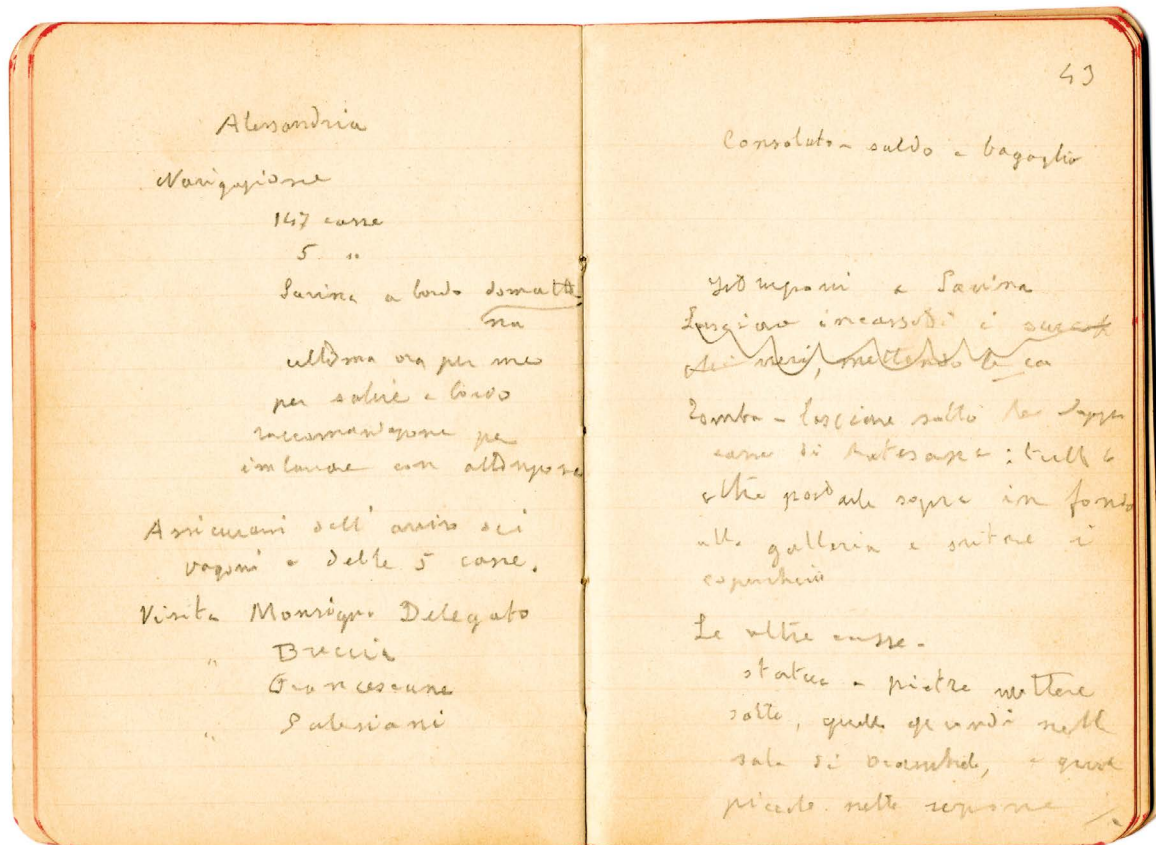 Alessandria
Navigazione
147 casse
5 "
Savina a bordo domatti
na
ultima ora per me
per salire a bordo
raccomandazione per
con attenzione
Assicurarsi dell' arrivo dei
vagoni e delle 5 casse.
Visita Monsignor Delegato
" Breccia
Francescane
" Salesiani
43
Consolato - saldo e bagaglio
e Savina
Lasciare i
dei neri, mettendo la ca
Tomba - Lasciare sotto
casse di : tutte le
altre portarle sopra in fondo
alla galleria e svitare i
coperchi
Le altre casse -
statue e pietre mettere
sotto, quelle grandi nella
sala di, e quelle
piccole nella